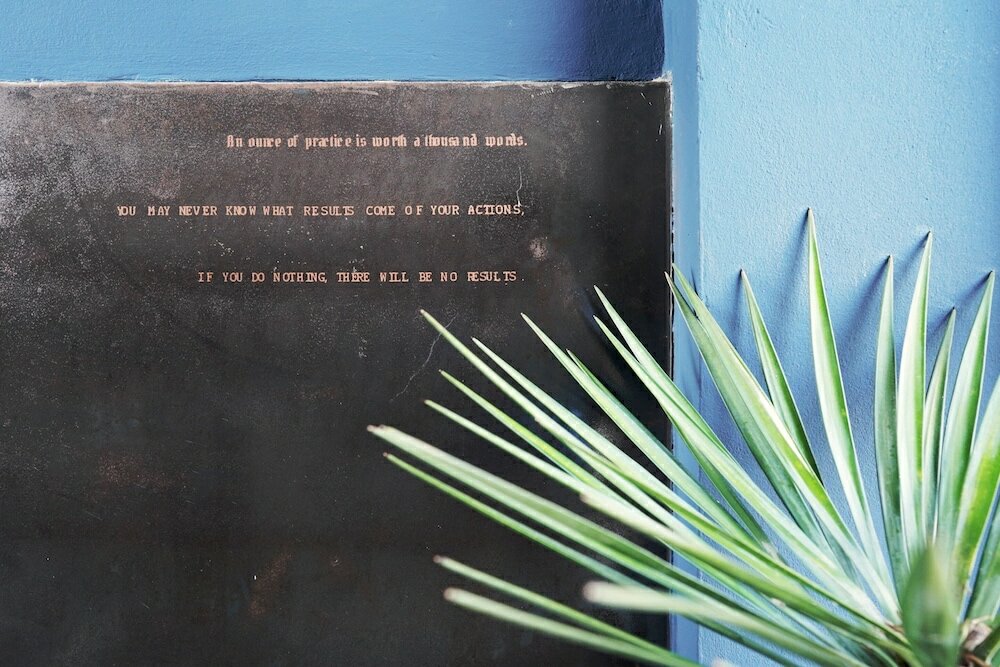 An ounce of practice is worth a thousand words.
YOU MAY NEVER KNOW WHAT RESULTS COME OF YOUR ACTIONS,
IF YOU DO NOTHING, THERE WILL BE NO RESULTS.